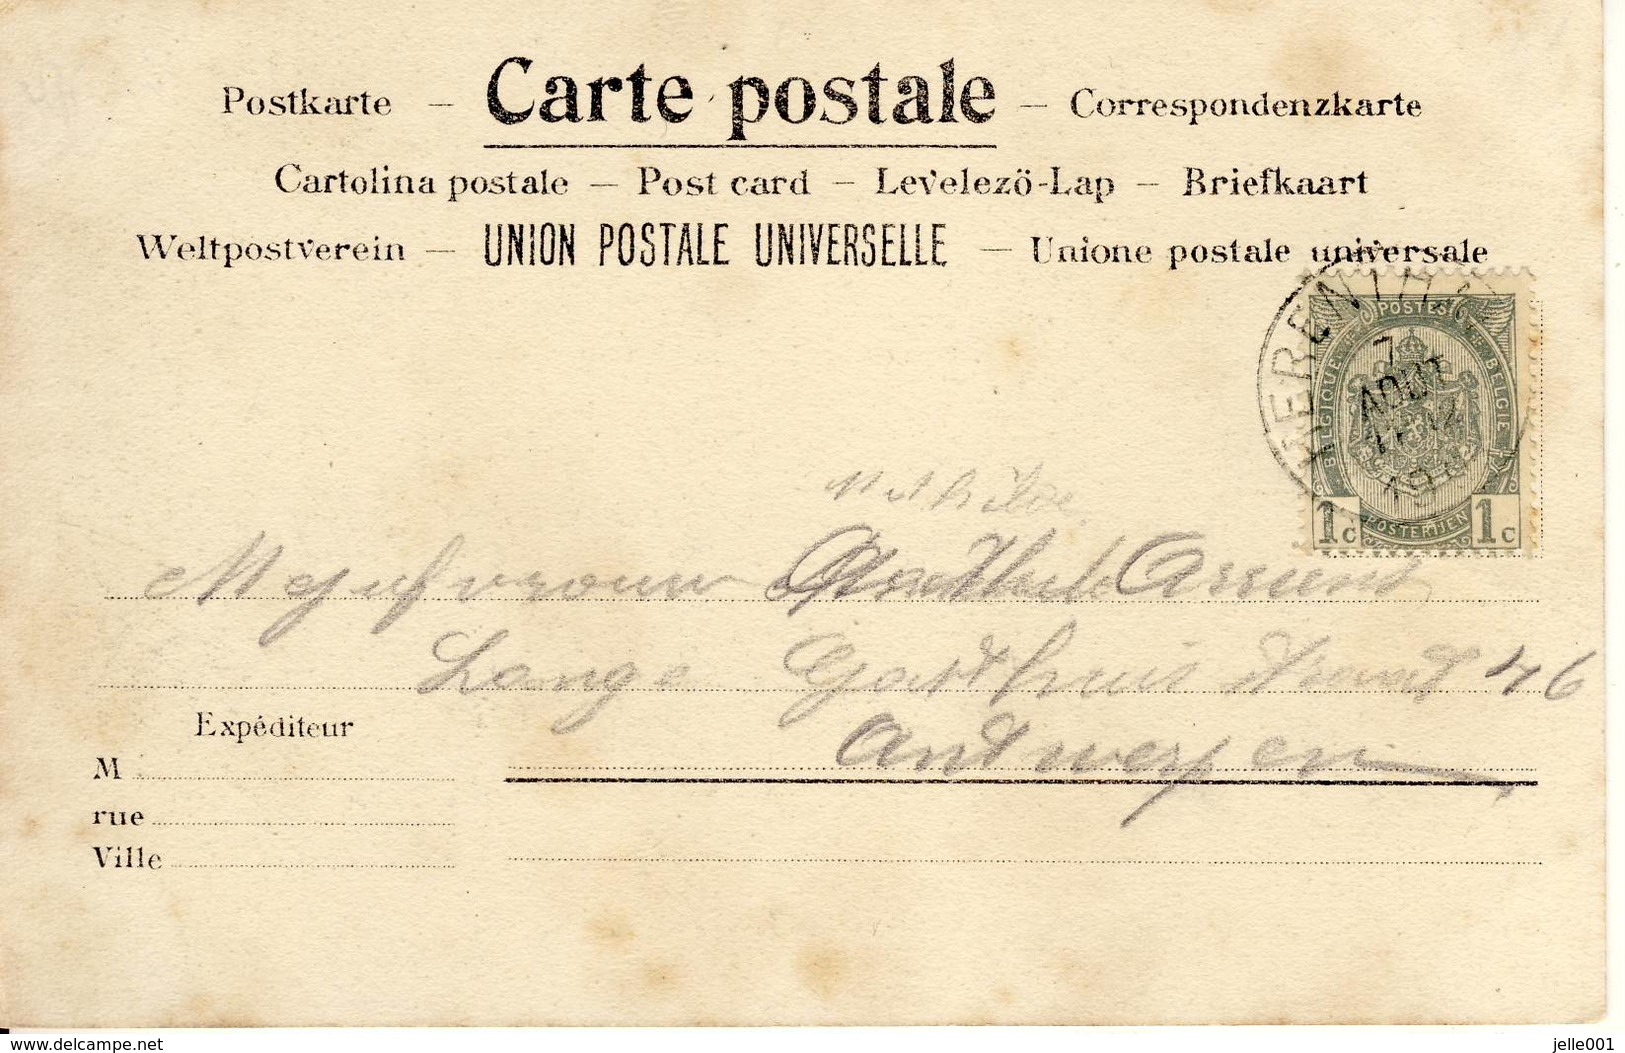 Postkarte – Carte postale – Correspondenzkarte
Cartolina postale – Post card – Levelezö-Lap – Briefkaart
Weltpostverein – UNION POSTALE UNIVERSELLE – Unione postale universale
POSTES
BELGIQUE BELGIE
7
AOUT
POSTERIJEN
1c 1c
Mathilde
Mejufvrouw
Lange Gasthuis straat 46
Antwerpen
Expéditeur
M
rue
Ville
delcampe.net
jelle001